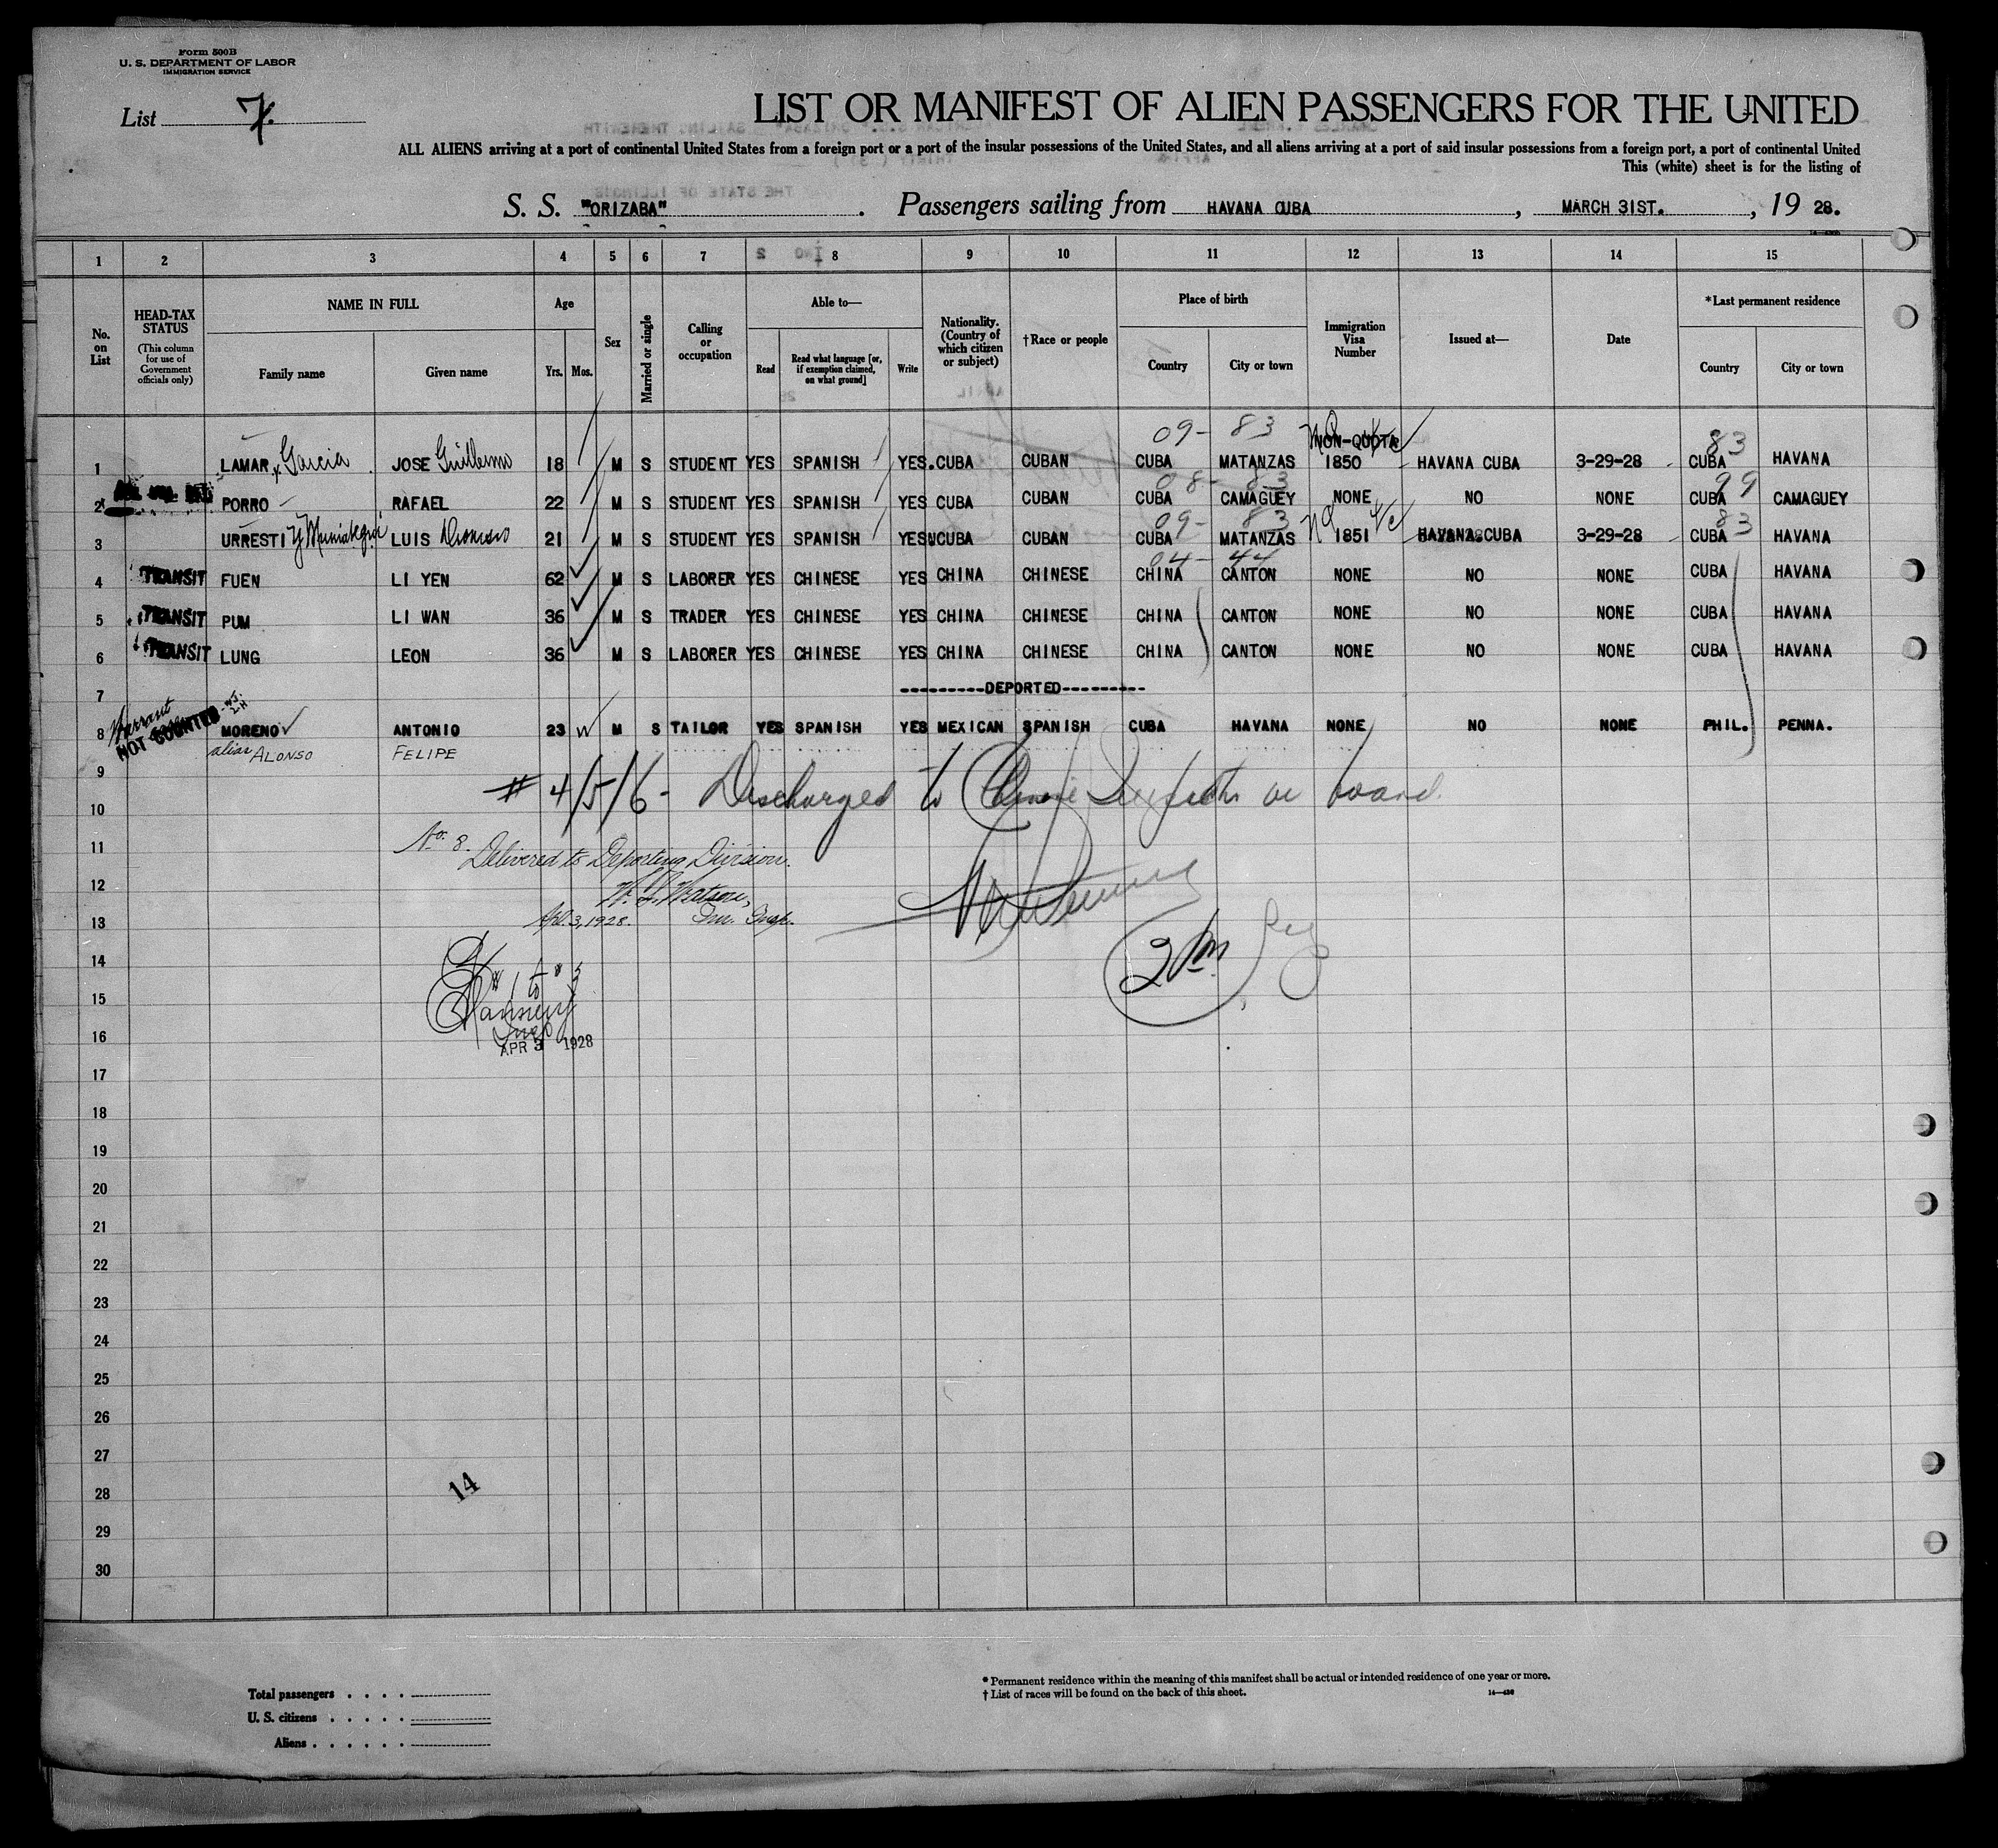 Form 500B
U. S. DEPARTMENT OF LABOR
IMMIGRATION SERVICE
List 7.
LIST OR MANIFEST OF ALIEN PASSENGERS FOR THE UNITED
ALL ALIENS arriving at a port of continental United States from a foreign port or a port of the insular possessions of the United States, and all aliens arriving at a port of said insular possessions from a foreign port, a port of continental United
This (white) sheet is for the listing of
S. S. "ORIZABA". Passengers sailing from HAVANA CUBA, MARCH 31ST., 19 28.
1 2 3 4 5 6 7 8 9 10 11 12 13 14 15
No. on List
HEAD-TAX STATUS (This column for use of Government officials only)
NAME IN FULL
Family name Given name
Age
Yrs. Mos.
Sex
Married or single
Calling or occupation
Able to—
Read Read what language [or, if exemption claimed, on what ground] Write
Nationality. (Country of which citizen or subject)
†Race or people
Place of birth
Country City or town
Immigration Visa Number
Issued at—
Date
*Last permanent residence
Country City or town
09- 83 NON-QUOTA 83
1 LAMAR y Garcia JOSE Guillermo 18 M S STUDENT YES SPANISH YES. CUBA CUBAN CUBA MATANZAS 1850 HAVANA CUBA 3-29-28 CUBA HAVANA
08- 83 99
2 PORRO RAFAEL 22 M S STUDENT YES SPANISH YES CUBA CUBAN CUBA CAMAGUEY NONE NO NONE CUBA CAMAGUEY
09- 83 83
3 URRESTI y LUIS Dionisio 21 M S STUDENT YES SPANISH YES CUBA CUBAN CUBA MATANZAS 1851 HAVANA.CUBA 3-29-28 CUBA HAVANA
04- 44
4 TRANSIT FUEN LI YEN 62 M S LABORER YES CHINESE YES CHINA CHINESE CHINA CANTON NONE NO NONE CUBA HAVANA
5 TRANSIT PUM LI WAN 36 M S TRADER YES CHINESE YES CHINA CHINESE CHINA CANTON NONE NO NONE CUBA HAVANA
6 TRANSIT LUNG LEON 36 M S LABORER YES CHINESE YES CHINA CHINESE CHINA CANTON NONE NO NONE CUBA HAVANA
7 ---------DEPORTED---------
Warrant
8 NOT COUNTED MORENO ANTONIO 23 W M S TAILOR YES SPANISH YES MEXICAN SPANISH CUBA HAVANA NONE NO NONE PHIL. PENNA.
alias ALONSO FELIPE
9
# 4/5/6 - Discharged to Chinese on board
10
11
No. 8. Delivered to Deporting Division.
12
W. J. Watson,
13
Apl. 3, 1928. Im. Insp.
14
15
16
APR 3 1928
17
18
19
20
21
22
23
24
25
26
27
28
14
29
30
Total passengers . . . .
U. S. citizens . . . . .
Aliens . . . . . .
* Permanent residence within the meaning of this manifest shall be actual or intended residence of one year or more.
† List of races will be found on the back of this sheet.